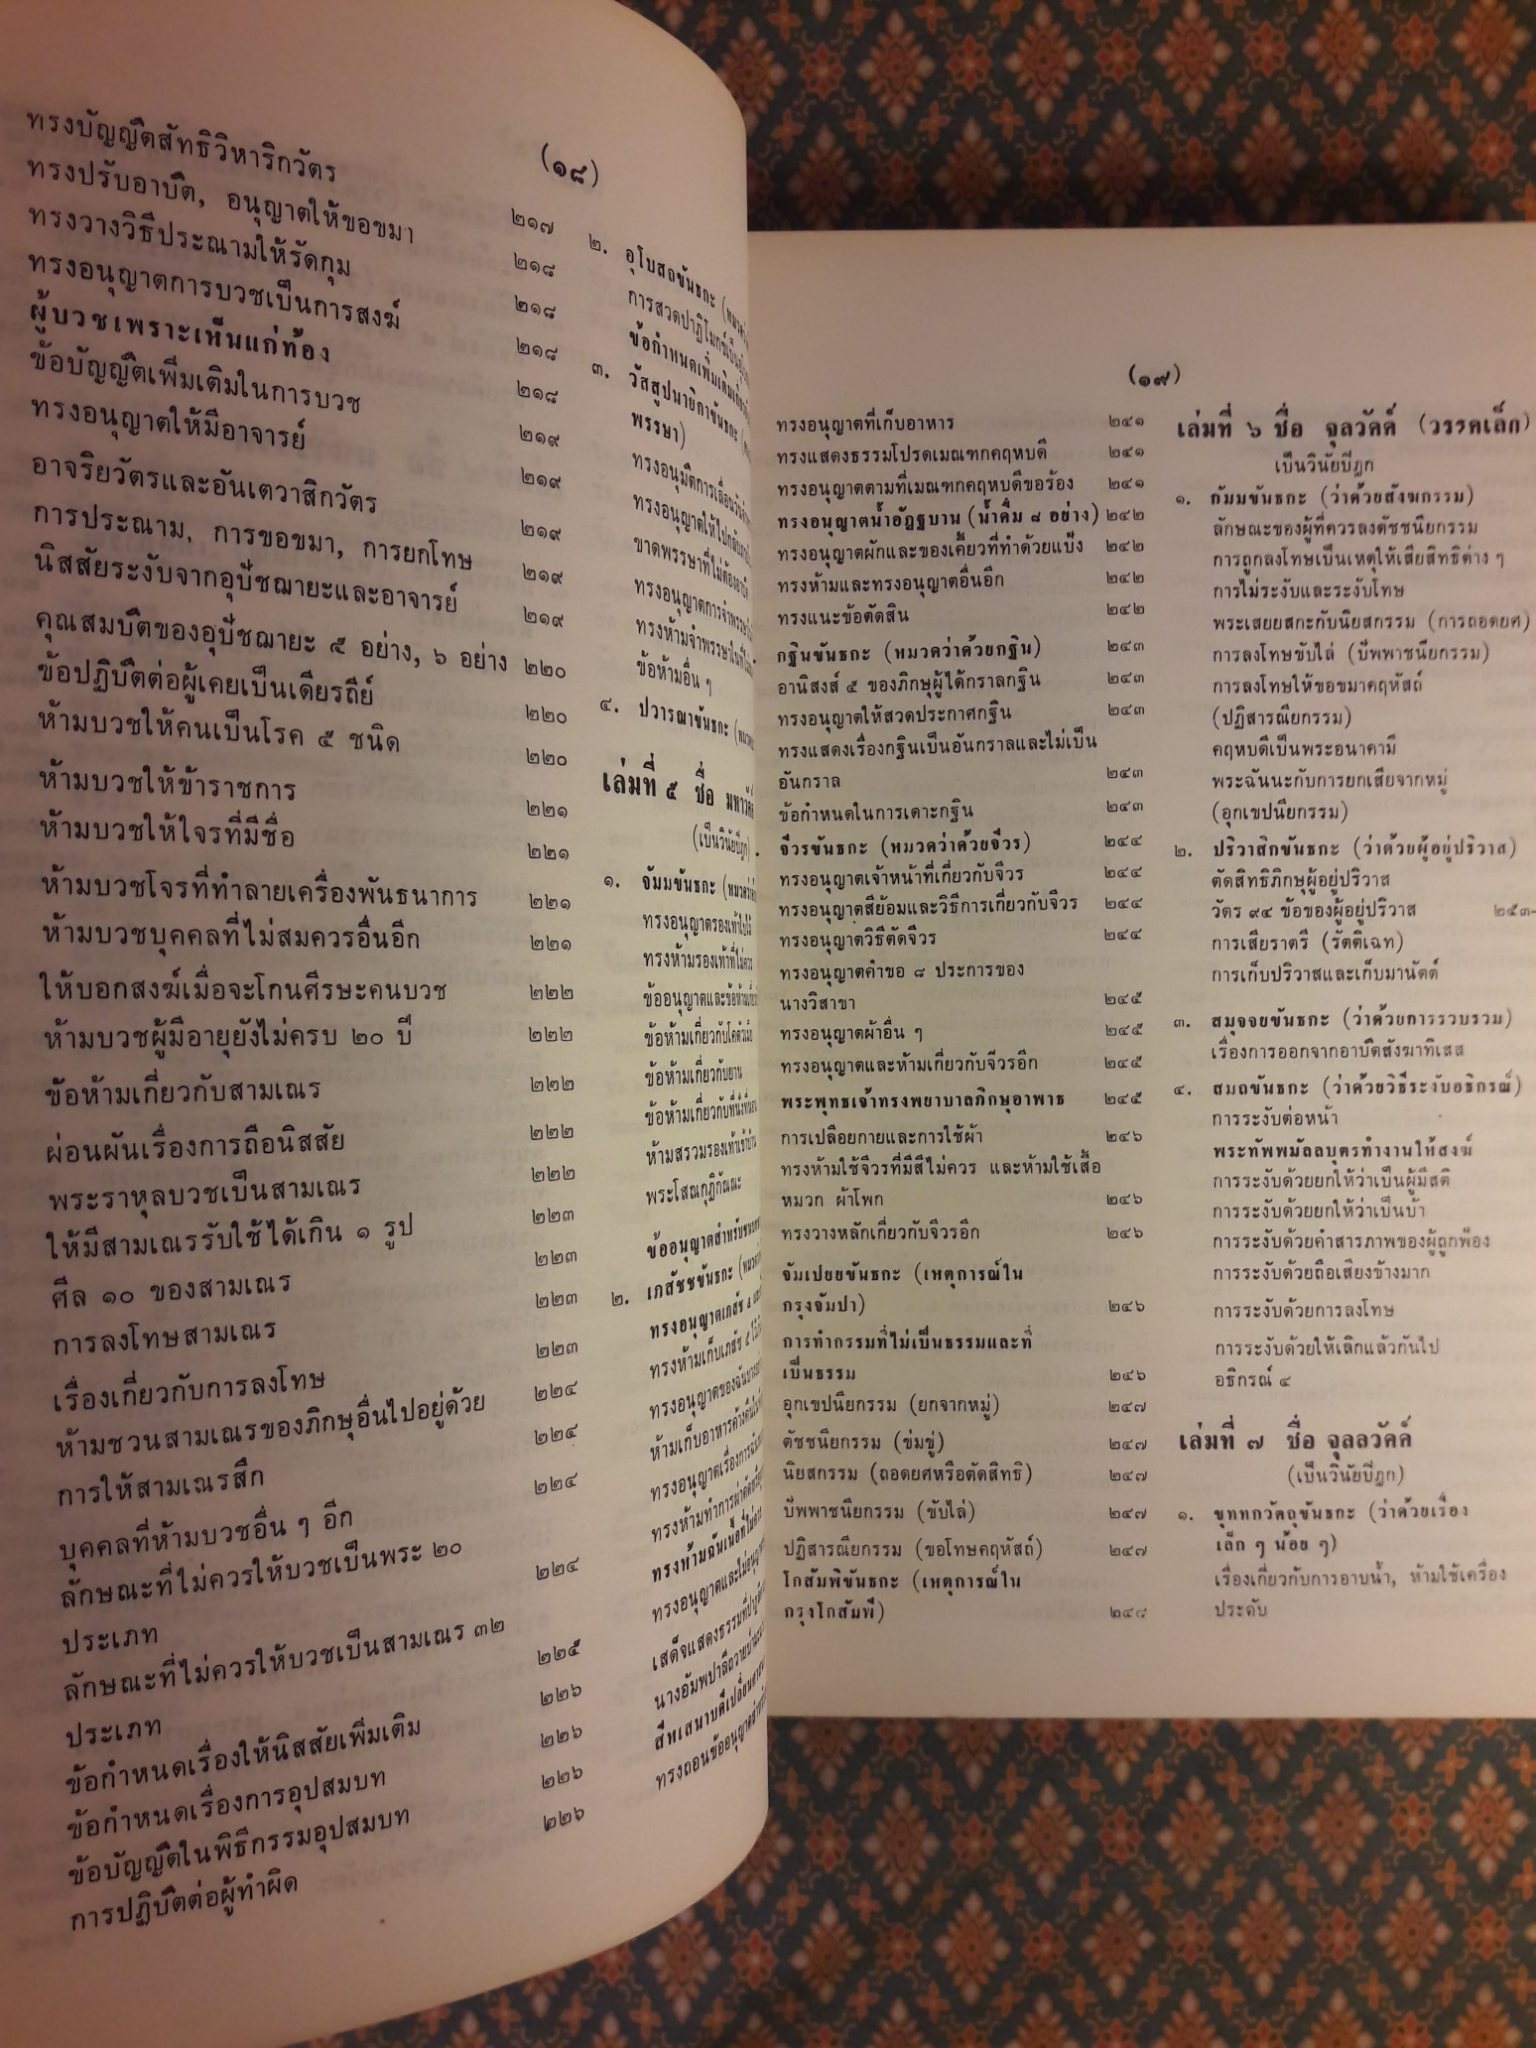 (๑๘)
ทรงบัญญัติสัทธิวิหาริกวัตร ๒๑๗
ทรงปรับอาบัติ, อนุญาตให้ขอขมา ๒๑๘
ทรงวางวิธีประณามให้รัดกุม ๒๑๘
ทรงอนุญาตการบวชเป็นการสงฆ์ ๒๑๘
ผู้บวชเพราะเห็นแก่ท้อง ๒๑๘
ข้อบัญญัติเพิ่มเติมในการบวช ๒๑๙
ทรงอนุญาตให้มีอาจารย์ ๒๑๙
อาจริยวัตรและอันเตวาสิกวัตร ๒๑๙
การประณาม, การขอขมา, การยกโทษ ๒๑๙
นิสสัยระงับจากอุปัชฌายะและอาจารย์ ๒๑๙
คุณสมบัติของอุปัชฌายะ ๕ อย่าง, ๖ อย่าง ๒๒๐
ข้อปฏิบัติต่อผู้เคยเป็นเดียรถีย์ ๒๒๐
ห้ามบวชให้คนเป็นโรค ๕ ชนิด ๒๒๐
ห้ามบวชให้ข้าราชการ ๒๒๑
ห้ามบวชให้โจรที่มีชื่อ ๒๒๑
ห้ามบวชโจรที่ทำลายเครื่องพันธนาการ ๒๒๑
ห้ามบวชบุคคลที่ไม่สมควรอื่นอีก ๒๒๑
ให้บอกสงฆ์เมื่อจะโกนศีรษะคนบวช ๒๒๒
ห้ามบวชผู้มีอายุยังไม่ครบ ๒๐ ปี ๒๒๒
ข้อห้ามเกี่ยวกับสามเณร ๒๒๒
ผ่อนผันเรื่องการถือนิสสัย ๒๒๒
พระราหุลบวชเป็นสามเณร ๒๒๒
ให้มีสามเณรรับใช้ได้เกิน ๑ รูป ๒๒๓
ศีล ๑๐ ของสามเณร ๒๒๓
การลงโทษสามเณร ๒๒๓
เรื่องเกี่ยวกับการลงโทษ ๒๒๓
ห้ามชวนสามเณรของภิกษุอื่นไปอยู่ด้วย ๒๒๔
การให้สามเณรสึก ๒๒๔
บุคคลที่ห้ามบวชอื่น ๆ อีก ๒๒๔
ลักษณะที่ไม่ควรให้บวชเป็นพระ ๒๐
ประเภท ๒๒๔
ลักษณะที่ไม่ควรให้บวชเป็นสามเณร ๓๒
ประเภท ๒๒๕
ข้อกำหนดเรื่องให้นิสสัยเพิ่มเติม ๒๒๖
ข้อกำหนดเรื่องการอุปสมบท ๒๒๖
ข้อบัญญัติในพิธีกรรมอุปสมบท ๒๒๖
การปฏิบัติต่อผู้ทำผิด ๒๒๖
๒. อุโบสถขันธกะ
การสวดปาฏิโมกข์
ข้อกำหนดเพิ่มเติม
๓. วัสสูปนายิกาขันธกะ
พรรษา)
ทรงอนุมัติการเลื่อน
ทรงอนุญาตให้ไป
ขาดพรรษาที่ไม่ต้องอาบัติ
ทรงอนุญาตการจำพรรษา
ทรงห้ามจำพรรษาในที่
ข้อห้ามอื่น ๆ
๔. ปวารณาขันธกะ
เล่มที่ ๕ ชื่อ
(เป็นวินัยปิฎก)
๑. จัมมขันธกะ
ทรงอนุญาตรองเท้า
ทรงห้ามรองเท้าที่ไม่ควร
ข้ออนุญาตและข้อห้าม
ข้อห้ามเกี่ยวกับโค
ข้อห้ามเกี่ยวกับยาน
ข้อห้ามเกี่ยวกับที่
ห้ามสรวมรองเท้าเข้าบ้าน
พระโสณกุฏิกัณณะ
ข้ออนุญาตสำหรับ
๒. เภสัชชขันธกะ
ทรงอนุญาตเภสัช ๕
ทรงห้ามเก็บเภสัช ๕
ทรงอนุญาตของ
ห้ามเก็บอาหาร
ทรงอนุญาตเรื่องการ
ทรงห้ามทำการผ่าตัด
ทรงห้ามฉันเนื้อที่ไม่ควร
ทรงอนุญาตและไม่
เสด็จแสดงธรรมที่
นางอัมพปาลีถวาย
สีหเสนาบดีเปลี่ยน
ทรงถอนข้ออนุญาต
(๑๙)
ทรงอนุญาตที่เก็บอาหาร ๒๔๑
ทรงแสดงธรรมโปรดเมณฑกคฤหบดี ๒๔๑
ทรงอนุญาตตามที่เมณฑกคฤหบดีขอร้อง ๒๔๑
ทรงอนุญาตน้ำอัฏฐบาน (น้ำดื่ม ๘ อย่าง) ๒๔๒
ทรงอนุญาตผักและของเคี้ยวที่ทำด้วยแป้ง ๒๔๒
ทรงห้ามและทรงอนุญาตอื่นอีก ๒๔๒
ทรงแนะข้อตัดสิน ๒๔๒
กฐินขันธกะ (หมวดว่าด้วยกฐิน) ๒๔๓
อานิสงส์ ๕ ของภิกษุผู้ได้กราลกฐิน ๒๔๓
ทรงอนุญาตให้สวดประกาศกฐิน ๒๔๓
ทรงแสดงเรื่องกฐินเป็นอันกราลและไม่เป็น
อันกราล ๒๔๓
ข้อกำหนดในการเดาะกฐิน ๒๔๓
จีวรขันธกะ (หมวดว่าด้วยจีวร) ๒๔๔
ทรงอนุญาตเจ้าหน้าที่เกี่ยวกับจีวร ๒๔๔
ทรงอนุญาตสีย้อมและวิธีการเกี่ยวกับจีวร ๒๔๔
ทรงอนุญาตวิธีตัดจีวร ๒๔๔
ทรงอนุญาตคำขอ ๘ ประการของ
นางวิสาขา ๒๔๕
ทรงอนุญาตผ้าอื่น ๆ ๒๔๕
ทรงอนุญาตและห้ามเกี่ยวกับจีวรอีก ๒๔๕
พระพุทธเจ้าทรงพยาบาลภิกษุอาพาธ ๒๔๕
การเปลือยกายและการใช้ผ้า ๒๔๖
ทรงห้ามใช้จีวรที่มีสีไม่ควร และห้ามใช้เสื้อ
หมวก ผ้าโพก ๒๔๖
ทรงวางหลักเกี่ยวกับจีวรอีก ๒๔๖
จัมเปยยขันธกะ (เหตุการณ์ใน
กรุงจัมปา) ๒๔๖
การทำกรรมที่ไม่เป็นธรรมและที่
เป็นธรรม ๒๔๖
อุกเขปนียกรรม (ยกจากหมู่) ๒๔๗
ตัชชนียกรรม (ข่มขู่) ๒๔๗
นิยสกรรม (ถอดยศหรือตัดสิทธิ) ๒๔๗
ปัพพาชนียกรรม (ขับไล่) ๒๔๗
ปฏิสารณียกรรม (ขอโทษคฤหัสถ์) ๒๔๗
โกสัมพิขันธกะ (เหตุการณ์ใน
กรุงโกสัมพี) ๒๔๘
เล่มที่ ๖ ชื่อ จุลวัคค์ (วรรคเล็ก)
เป็นวินัยปิฎก
๑. กัมมขันธกะ (ว่าด้วยสังฆกรรม)
ลักษณะของผู้ที่ควรลงตัชชนียกรรม
การถูกลงโทษเป็นเหตุให้เสียสิทธิต่าง ๆ
การไม่ระงับและระงับโทษ
พระเสยยสกะกับนิยสกรรม (การถอดยศ)
การลงโทษขับไล่ (ปัพพาชนียกรรม)
การลงโทษให้ขอขมาคฤหัสถ์
(ปฏิสารณียกรรม)
คฤหบดีเป็นพระอนาคามี
พระฉันนะกับการยกเสียจากหมู่
(อุกเขปนียกรรม)
๒. ปริวาสิกขันธกะ (ว่าด้วยผู้อยู่ปริวาส)
ตัดสิทธิภิกษุผู้อยู่ปริวาส
วัตร ๙๔ ข้อของผู้อยู่ปริวาส ๒๕๓-
การเสียราตรี (รัตติเฉท)
การเก็บปริวาสและเก็บมานัตต์
๓. สมุจจยขันธกะ (ว่าด้วยการรวบรวม)
เรื่องการออกจากอาบัติสังฆาทิเสส
๔. สมถขันธกะ (ว่าด้วยวิธีระงับอธิกรณ์)
การระงับต่อหน้า
พระทัพพมัลลบุตรทำงานให้สงฆ์
การระงับด้วยยกให้ว่าเป็นผู้มีสติ
การระงับด้วยยกให้ว่าเป็นบ้า
การระงับด้วยคำสารภาพของผู้ถูกฟ้อง
การระงับด้วยถือเสียงข้างมาก
การระงับด้วยการลงโทษ
การระงับด้วยให้เลิกแล้วกันไป
อธิกรณ์ ๔
เล่มที่ ๗ ชื่อ จุลลวัคค์
(เป็นวินัยปิฎก)
๑. ขุททกวัตถุขันธกะ (ว่าด้วยเรื่อง
เล็ก ๆ น้อย ๆ)
เรื่องเกี่ยวกับการอาบน้ำ, ห้ามใช้เครื่อง
ประดับ